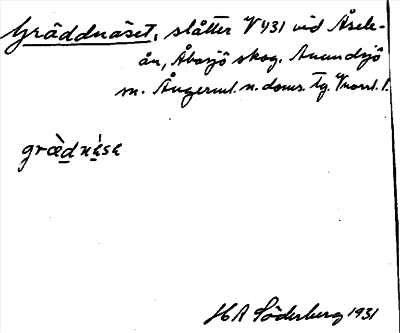 Gräddnäset, slåtter V 431 vid Åsele-
ån, Åbosjö skog. Anundsjö
sn. Ångerml. n. doms. tg. Vnorrl. l.
grædnése
HA Söderberg 1931